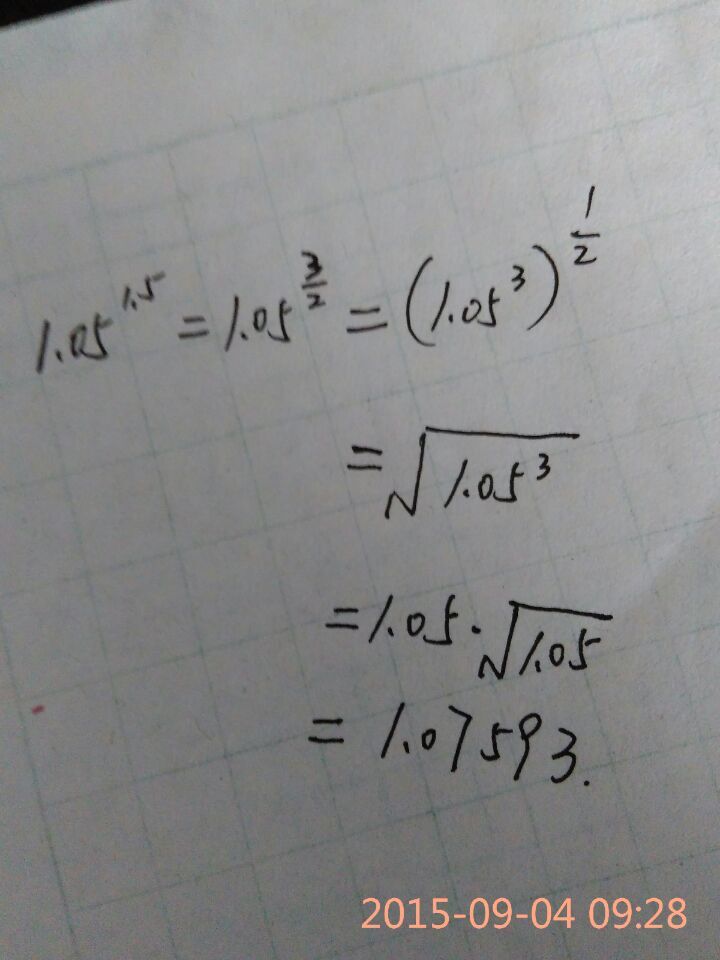 1.05^1.5 = 1.05^(3/2) = (1.05^3)^(1/2)
= √(1.05^3)
= 1.05 · √1.05
= 1.07593.
2015-09-04 09:28